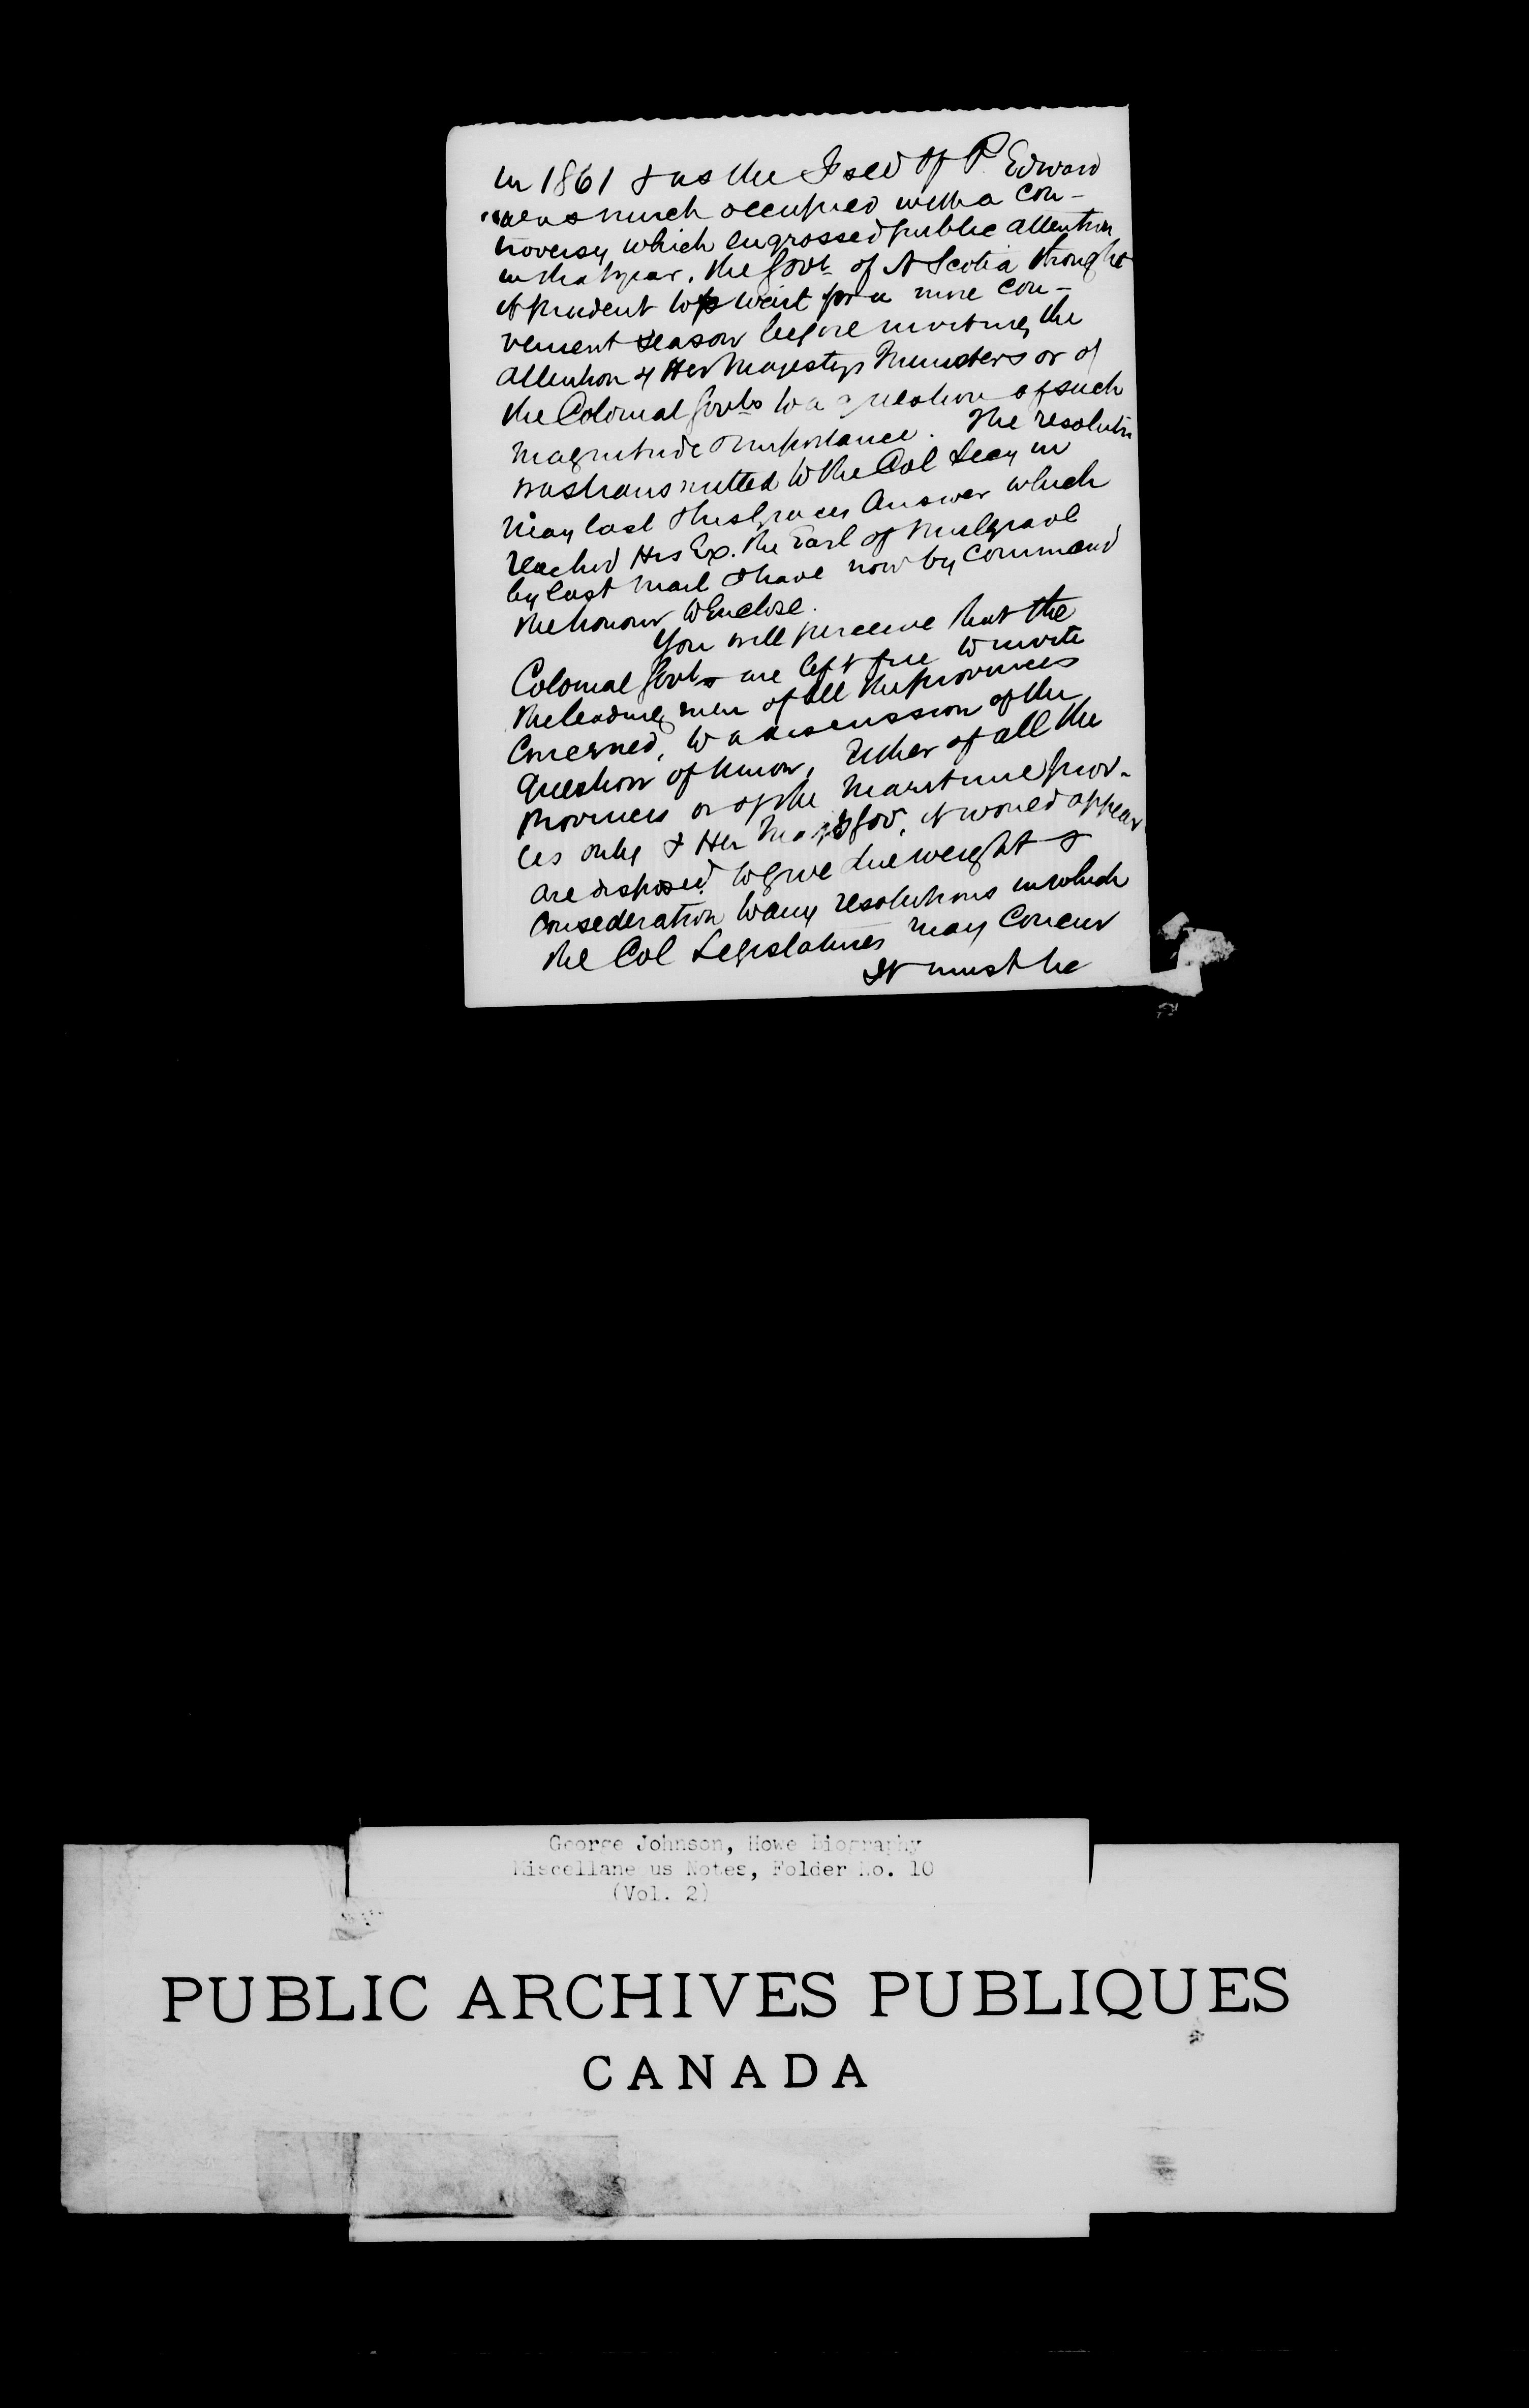 In 1861 & as the Isld of P. Edward
was much occupied with a con-
troversy which engrossed public attention
in that year, the Govt of N Scotia thought
it prudent to wait for a more con-
venient season before inviting the
attention of Her Majestys Ministers or of
the Colonial Govts to a question of such
magnitude & importance. The resolutn
was transmitted to the Col Secy in
May last & his Graces Answer which
reached His Ex. the Earl of Mulgrave
by last mail I have now by command
the honour to Enclose.
You will perceive that the
Colonial Govts are left free to invite
the leading men of all the provinces
Concerned, to a discussion of the
question of Union, Either of all the
provinces or of the Maritime prov-
ces only & Her Majs Gov, it would appear
are disposed to give due weight &
consederation to any resolutions in which
the Col Legislatures may Concur
It must be
George Johnson, Howe Biography
Miscellane us Notes, Folder No. 10
(Vol. 2)
PUBLIC ARCHIVES PUBLIQUES
CANADA